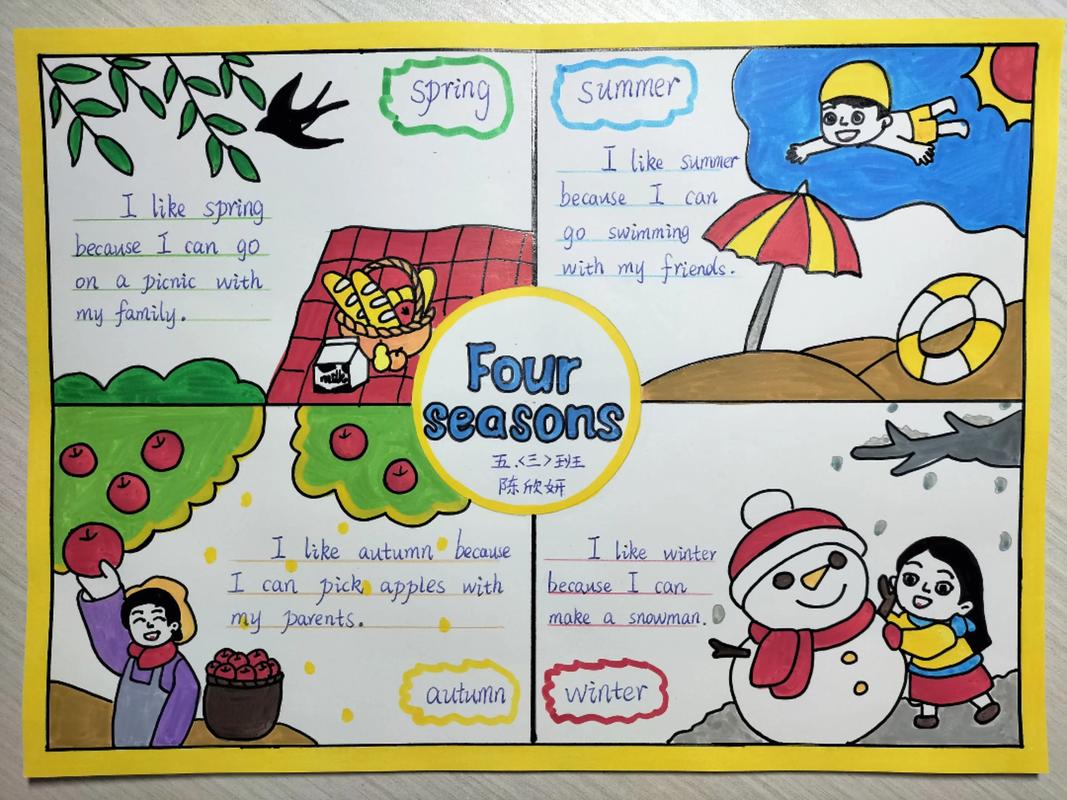 spring
I like spring
because I can go
on a picnic with
my family.
milk
summer
I like summer
because I can
go swimming
with my friends.
Four
seasons
五.<三>班
陈欣妍
I like autumn because
I can pick apples with
my parents.
autumn
I like winter
because I can
make a snowman.
winter